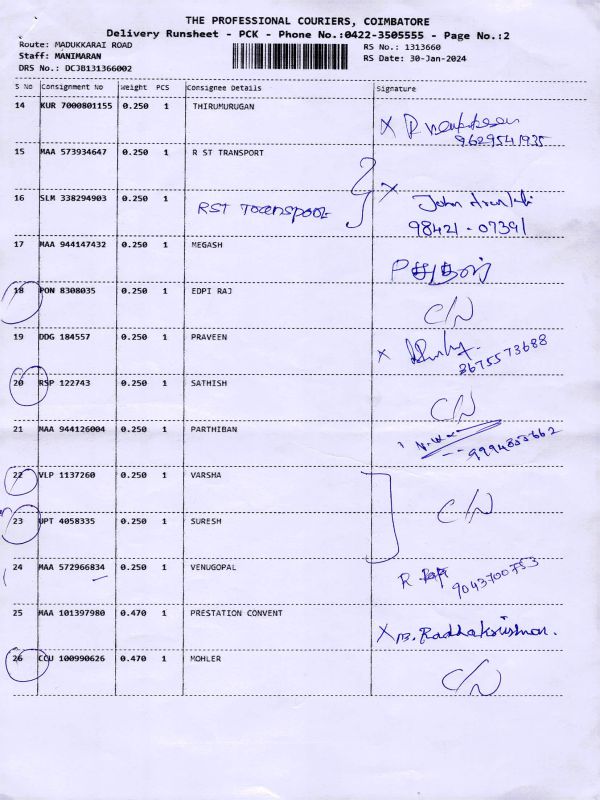 THE PROFESSIONAL COURIERS, COIMBATORE
Delivery Runsheet - PCK - Phone No.:0422-3505555 - Page No.:2
Route: MADUKKARAI ROAD RS No.: 1313660
Staff: MANIMARAN RS Date: 30-Jan-2024
DRS No.: DCJB131366002
S No Consignment No Weight PCS Consignee Details Signature
14 KUR 7000801155 0.250 1 THIRUMURUGAN
X
9629541935
15 MAA 573934647 0.250 1 R ST TRANSPORT
X
16 SLM 338294903 0.250 1 RST Transport John
98421-07391
17 MAA 944147432 0.250 1 MEGASH
18 PON 8308035 0.250 1 EDPI RAJ
C/N
19 DDG 184557 0.250 1 PRAVEEN
X
8675573688
20 RSP 122743 0.250 1 SATHISH
C/N
21 MAA 944126004 0.250 1 PARTHIBAN
22 VLP 1137260 0.250 1 VARSHA
C/N
23 UPT 4058335 0.250 1 SURESH
24 MAA 572966834 0.250 1 VENUGOPAL
9043700753
25 MAA 101397980 0.470 1 PRESTATION CONVENT
X B. Radhakrishnan.
26 CCU 100990626 0.470 1 MOHLER
C/N